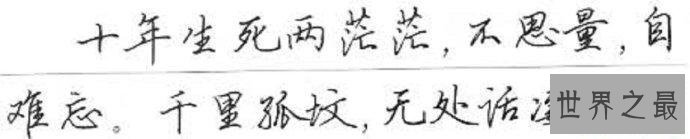 十年生死两茫茫，不思量，自
难忘。千里孤坟，无处话
世界之最